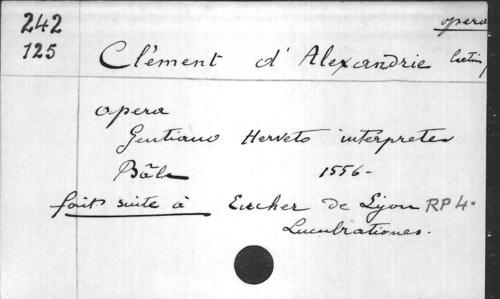 242 opera
125 Clément d'Alexandrie latin
opera
Gentiano Herveto interprete
Bâle 1556-
fait suite à Eucher de Lyon RP 4.
Lucubrationes.